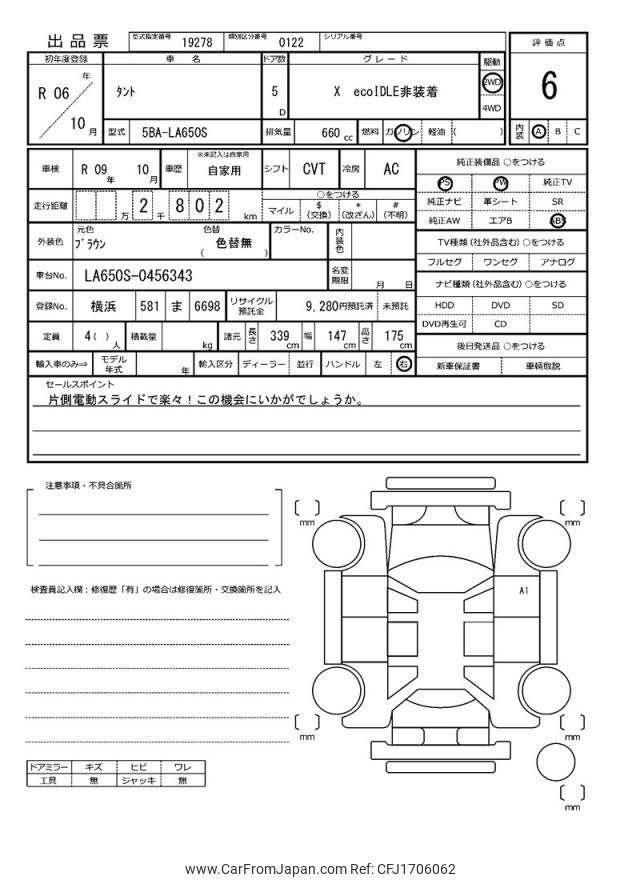 出品票
型式指定番号 19278 類別区分番号 0122 シリアル番号
初年度登録 車名 ドア数 グレード 駆動 評価点
R 06 年 10 月 タント 5 D X ecoIDLE非装着 2WD 4WD 6
型式 5BA-LA650S 排気量 660 cc 燃料 ガソリン 軽油 ( ) 内装 A B C
車検 R 09 年 10 月 車歴 ※未記入は自家用 自家用 シフト CVT 冷房 AC
純正装備品 ○をつける
PS PW 純正TV
純正ナビ 革シート SR
純正AW エアB ABS
走行距離 万 2 千 8 0 2 km
○をつける
マイル $ (交換) * (改ざん) # (不明)
外装色 元色 ブラウン 色替 ( 色替無 ) カラーNo. 内装色
TV種類 (社外品含む) ○をつける
フルセグ ワンセグ アナログ
車台No. LA650S-0456343 名変期限 月 日
ナビ種類 (社外品含む) ○をつける
HDD DVD SD
DVD再生可 CD
登録No. 横浜 581 ま 6698 リサイクル預託金 9,280円預託済 未預託
定員 4 ( ) 人 積載量 kg 諸元 長さ 339 cm 幅 147 cm 高さ 175 cm
後日発送品 ○をつける
新車保証書 車輌取説
輸入車のみ⇒ モデル年式 年 輸入区分 ディーラー 並行 ハンドル 左 右
セールスポイント
片側電動スライドで楽々！この機会にいかがでしょうか。
注意事項・不具合箇所
検査員記入欄：修復歴「有」の場合は修復箇所・交換箇所を記入
ドアミラー キズ ヒビ ワレ
工具 無 ジャッキ 無
[ ] mm
[ ] mm
A1
[ ] mm
[ ] mm
[ ] mm
www.CarFromJapan.com Ref: CFJ1706062